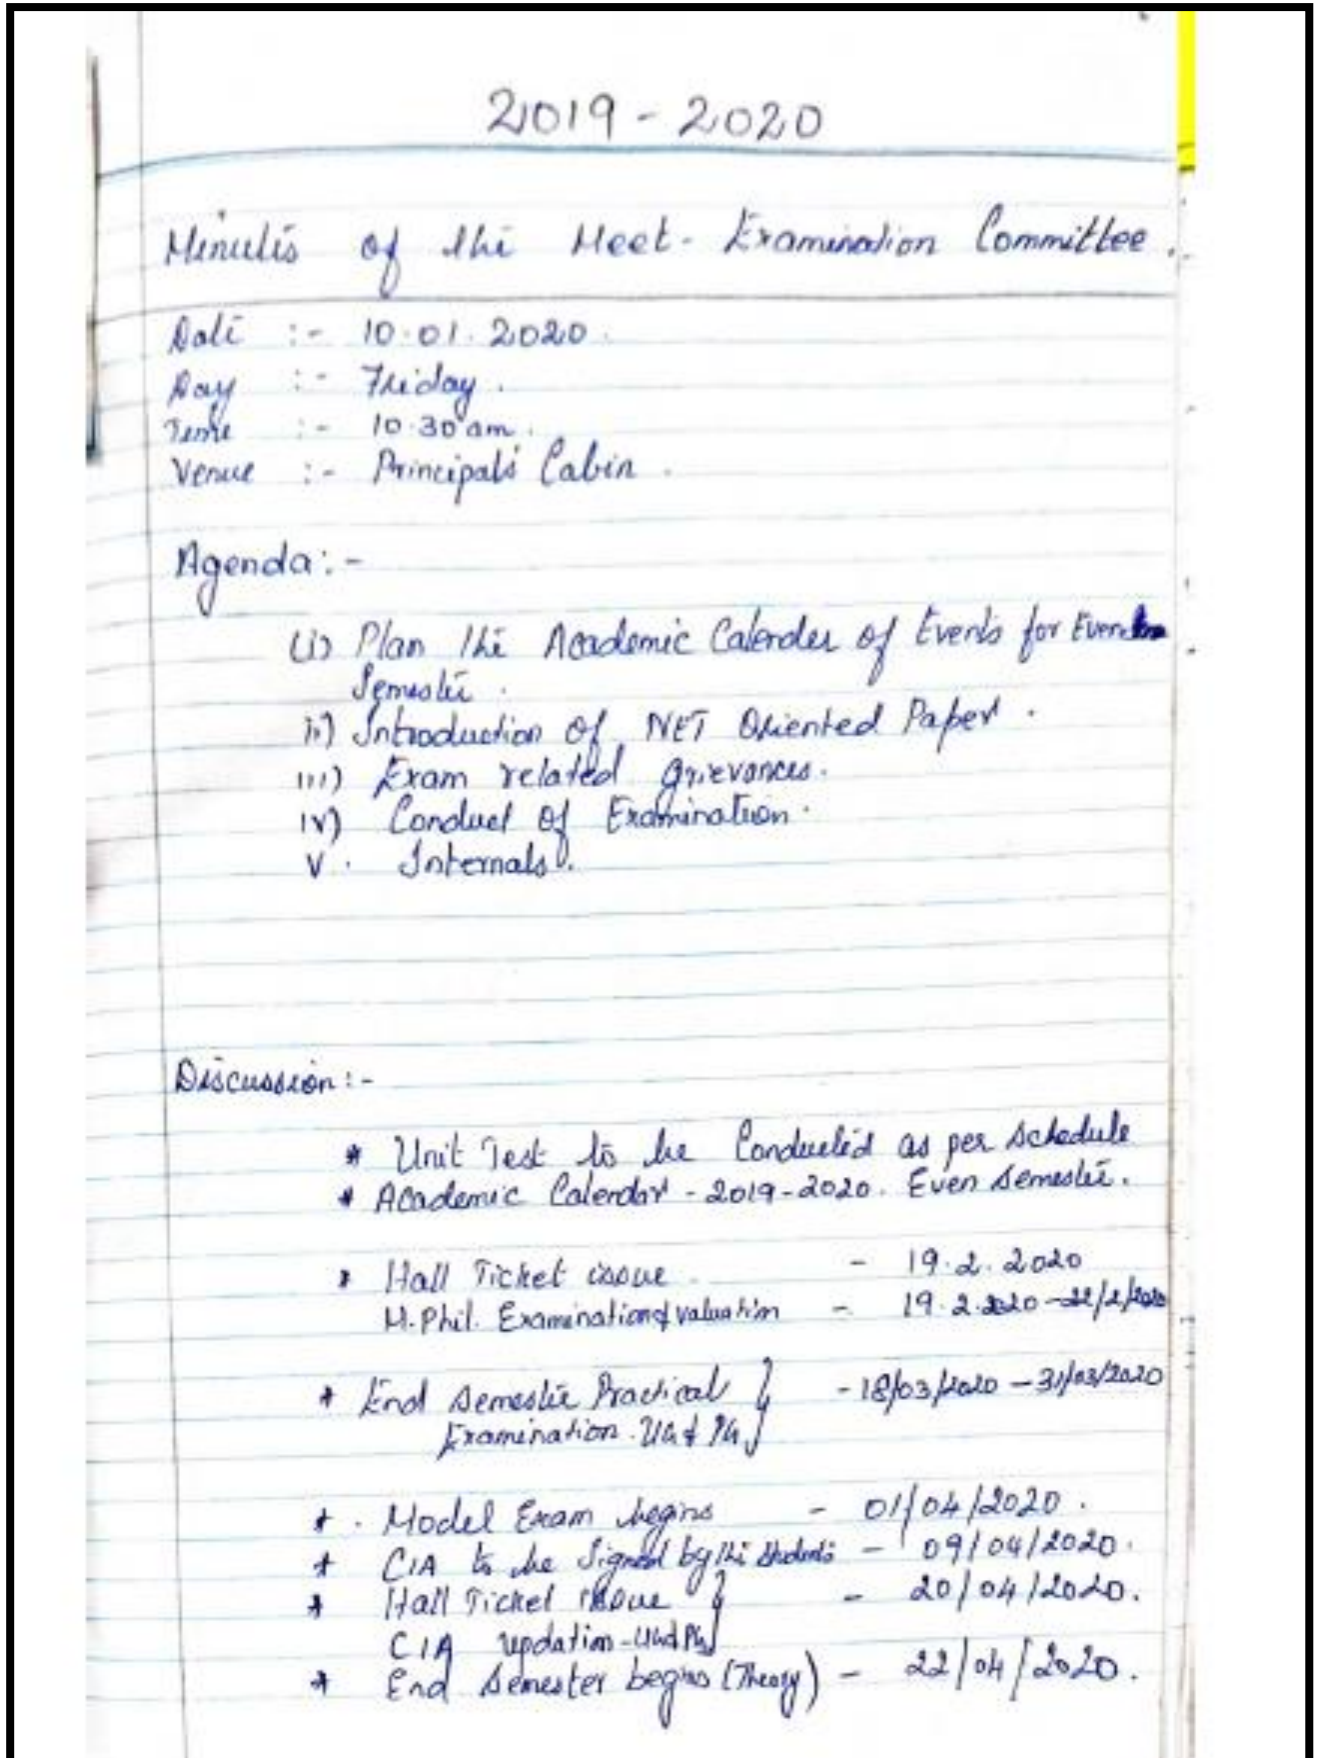 2019 - 2020
Minutes of the Meet - Examination Committee.
Date :- 10.01.2020.
Day :- Friday.
Time :- 10.30 am.
Venue :- Principal's Cabin.
Agenda:-
(i) Plan the Academic Calender of Events for Even
Semester.
ii) Introduction of NET Oriented Paper.
iii) Exam related grievances.
iv) Conduct of Examination.
V. Internals.
Discussion:-
* Unit Test to be Conducted as per schedule
* Academic Calendar - 2019-2020. Even semester.
* Hall Ticket issue - 19.2.2020
M.Phil. Examination & valuation - 19.2.2020 - 22/2/2020
* End semester Practical } - 18/03/2020 - 31/03/2020
Examination. UG & PG
* . Model Exam begins - 01/04/2020.
* CIA to be Signed by the students - 09/04/2020.
* Hall Ticket issue } - 20/04/2020.
CIA updation - UG & PG
* End semester begins (Theory) - 22/04/2020.